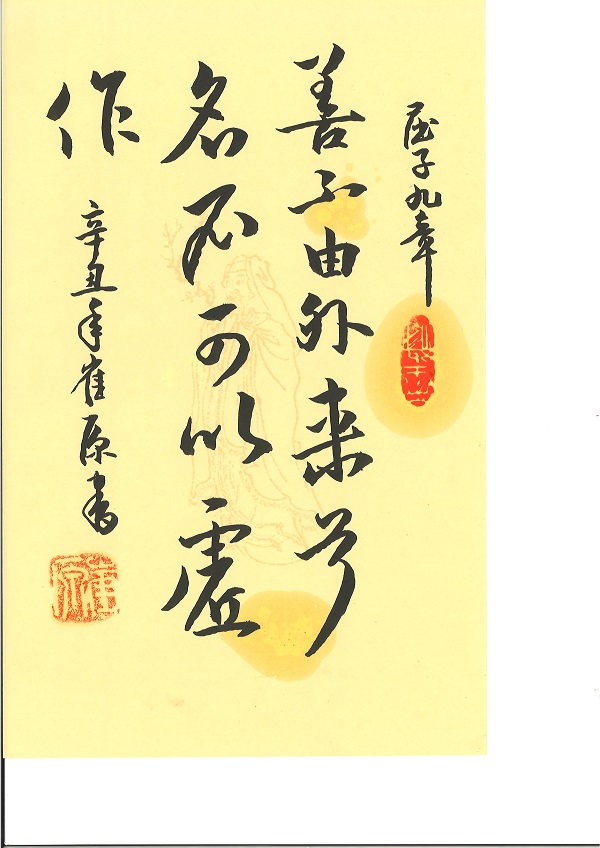 屈子九章
善不由外来兮
名不可以虚
作
辛丑年崔原書
崔原